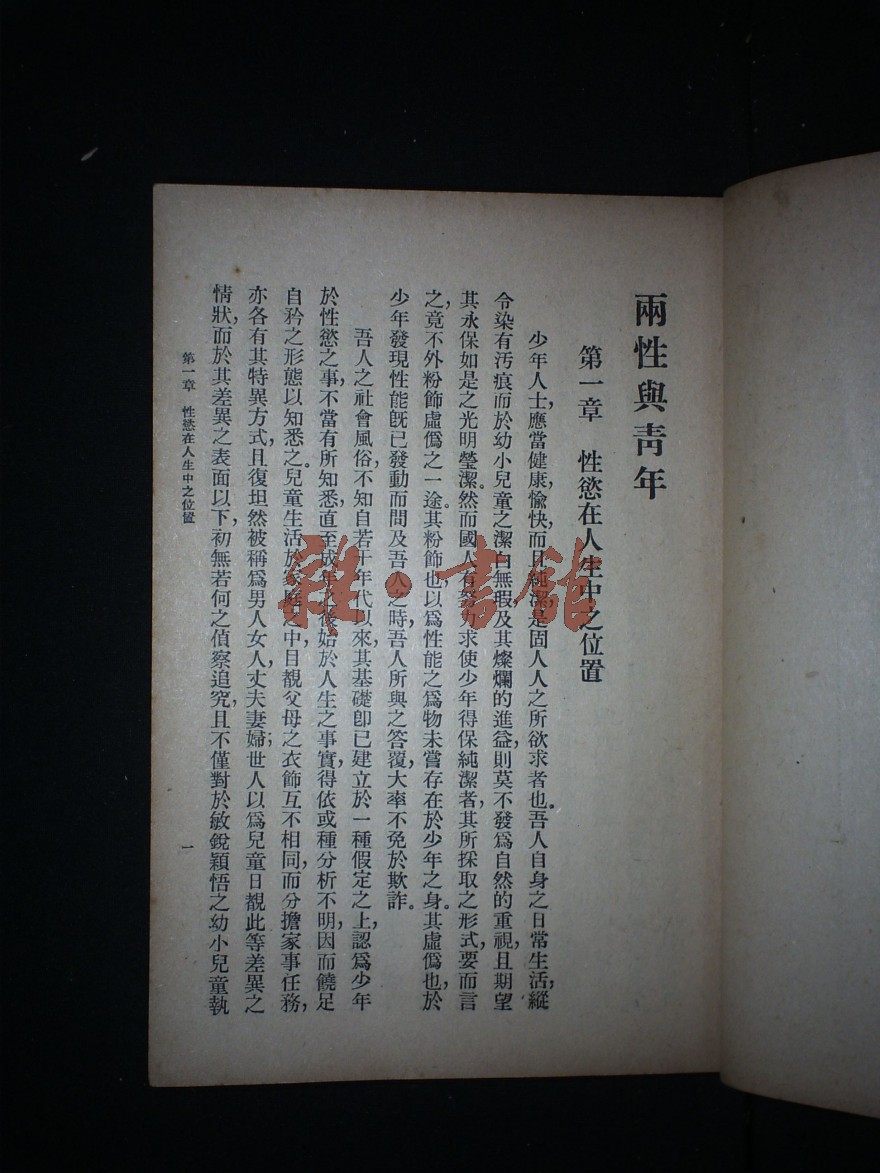 兩性與靑年
第一章 性慾在人生中之位置
少年人士應當健康愉快而且純潔，是固人人之所欲求者也。吾人自身之日常生活，縱
令染有汚痕，而於幼小兒童之潔白無瑕及其燦爛的進益，則莫不發爲自然的重視，且期望
其永保如是之光明瑩潔。然而國人有努力求使少年得保純潔者，其所採取之形式，要而言
之，竟不外粉飾虛僞之一途。其粉飾也，以爲性能之爲物未嘗存在於少年之身。其虛僞也，於
少年發現性能旣已發動而問及吾人之時，吾人所與之答覆，大率不免於欺詐。
吾人之社會風俗，不知自若干年代以來，其基礎卽已建立於一種假定之上，認爲少年
於性慾之事，不當有所知悉，直至成年之後，始於人生之事實，得依或種分析不明，因而饒足
自矜之形態以知悉之。兒童生活於家庭之中，目覩父母之衣飾互不相同，而分擔家事任務，
亦各有其特異方式，且復坦然被稱爲男人女人，丈夫妻婦；世人以爲兒童日覩此等差異之
情狀，而於其差異之表面以下，初無若何之偵察追究，且不僅對於敏銳穎悟之幼小兒童執
第一章 性慾在人生中之位置
一
雜·書館